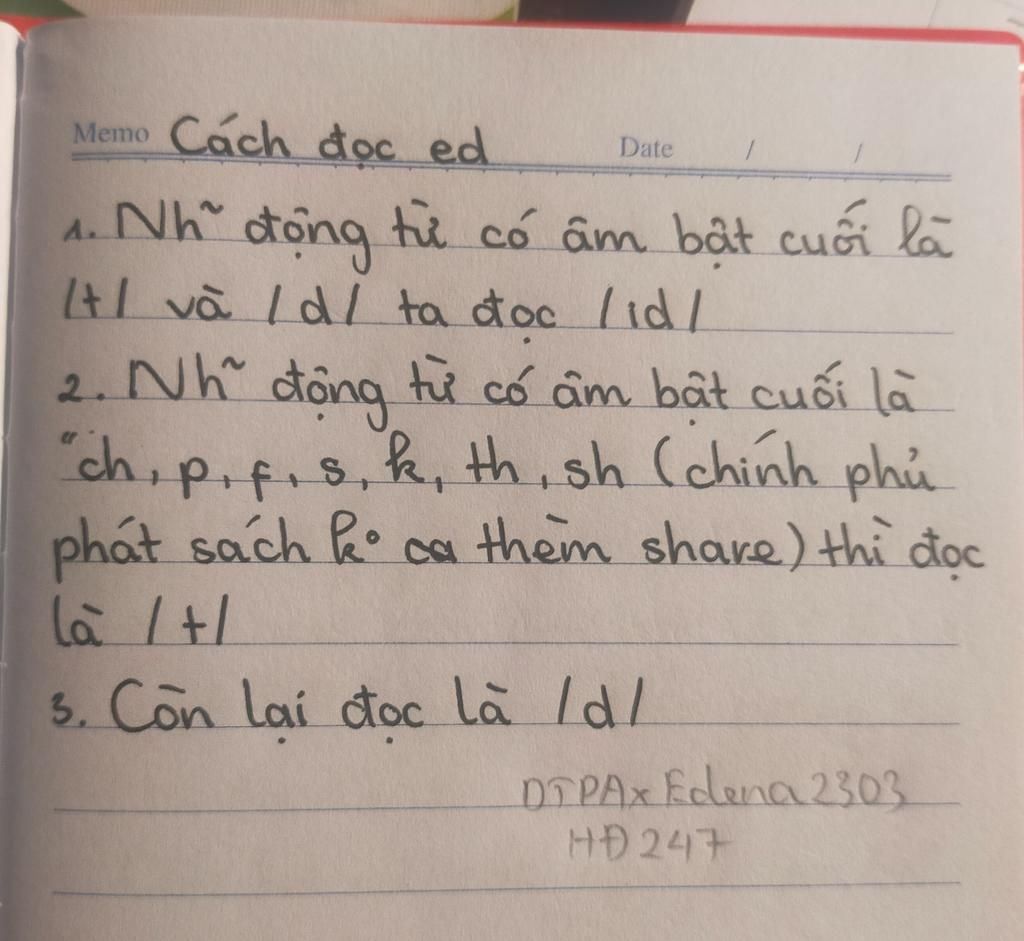 Memo Cách đọc ed Date / /
1. Nh~ động từ có âm bật cuối là
/t/ và /d/ ta đọc /ɪd/
2. Nh~ động từ có âm bật cuối là
"ch, p, f, s, k, th, sh (chính phủ
phát sách k° ca thèm share) thì đọc
là /t/
3. Còn lại đọc là /d/
DTPAx Edena2303
HĐ247